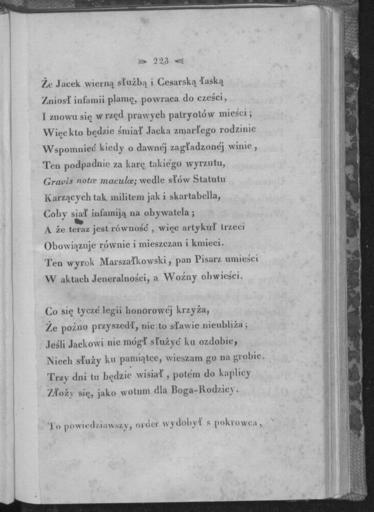 223
Że Jacek wierną służbą i Cesarską łaską
Zniosł infamii plamę, powraca do cześci,
I znowu się w rzęd prawych patryotów mieści;
Więc kto będzie śmiał Jacka zmarłego rodzinie
Wspomnieć kiedy o dawnéj zagładzonéj winie,
Ten podpadnie za karę takiego wyrzutu,
Gravis notæ maculæ; wedle słów Statutu
Karzących tak militem jak i skartabella,
Coby siał infamiją na obywatela;
A że teraz jest równość, więc artykuł trzeci
Obowiązuje równie i mieszczan i kmieci.
Ten wyrok Marszałkowski, pan Pisarz umieści
W aktach Jeneralności, a Woźny obwieści.
Co się tyczé legii honorowéj krzyża,
Że pożno przyszedł, nic to sławie nieubliża;
Jeśli Jackowi nie mógł służyć ku ozdobie,
Niech służy ku pamiątce, wieszam go na grobie.
Trzy dni tu będzie wisiał, potém do kaplicy
Złoży się, jako wotum dla Boga-Rodzicy.
To powiedziawszy, order wydobył s pokrowca,